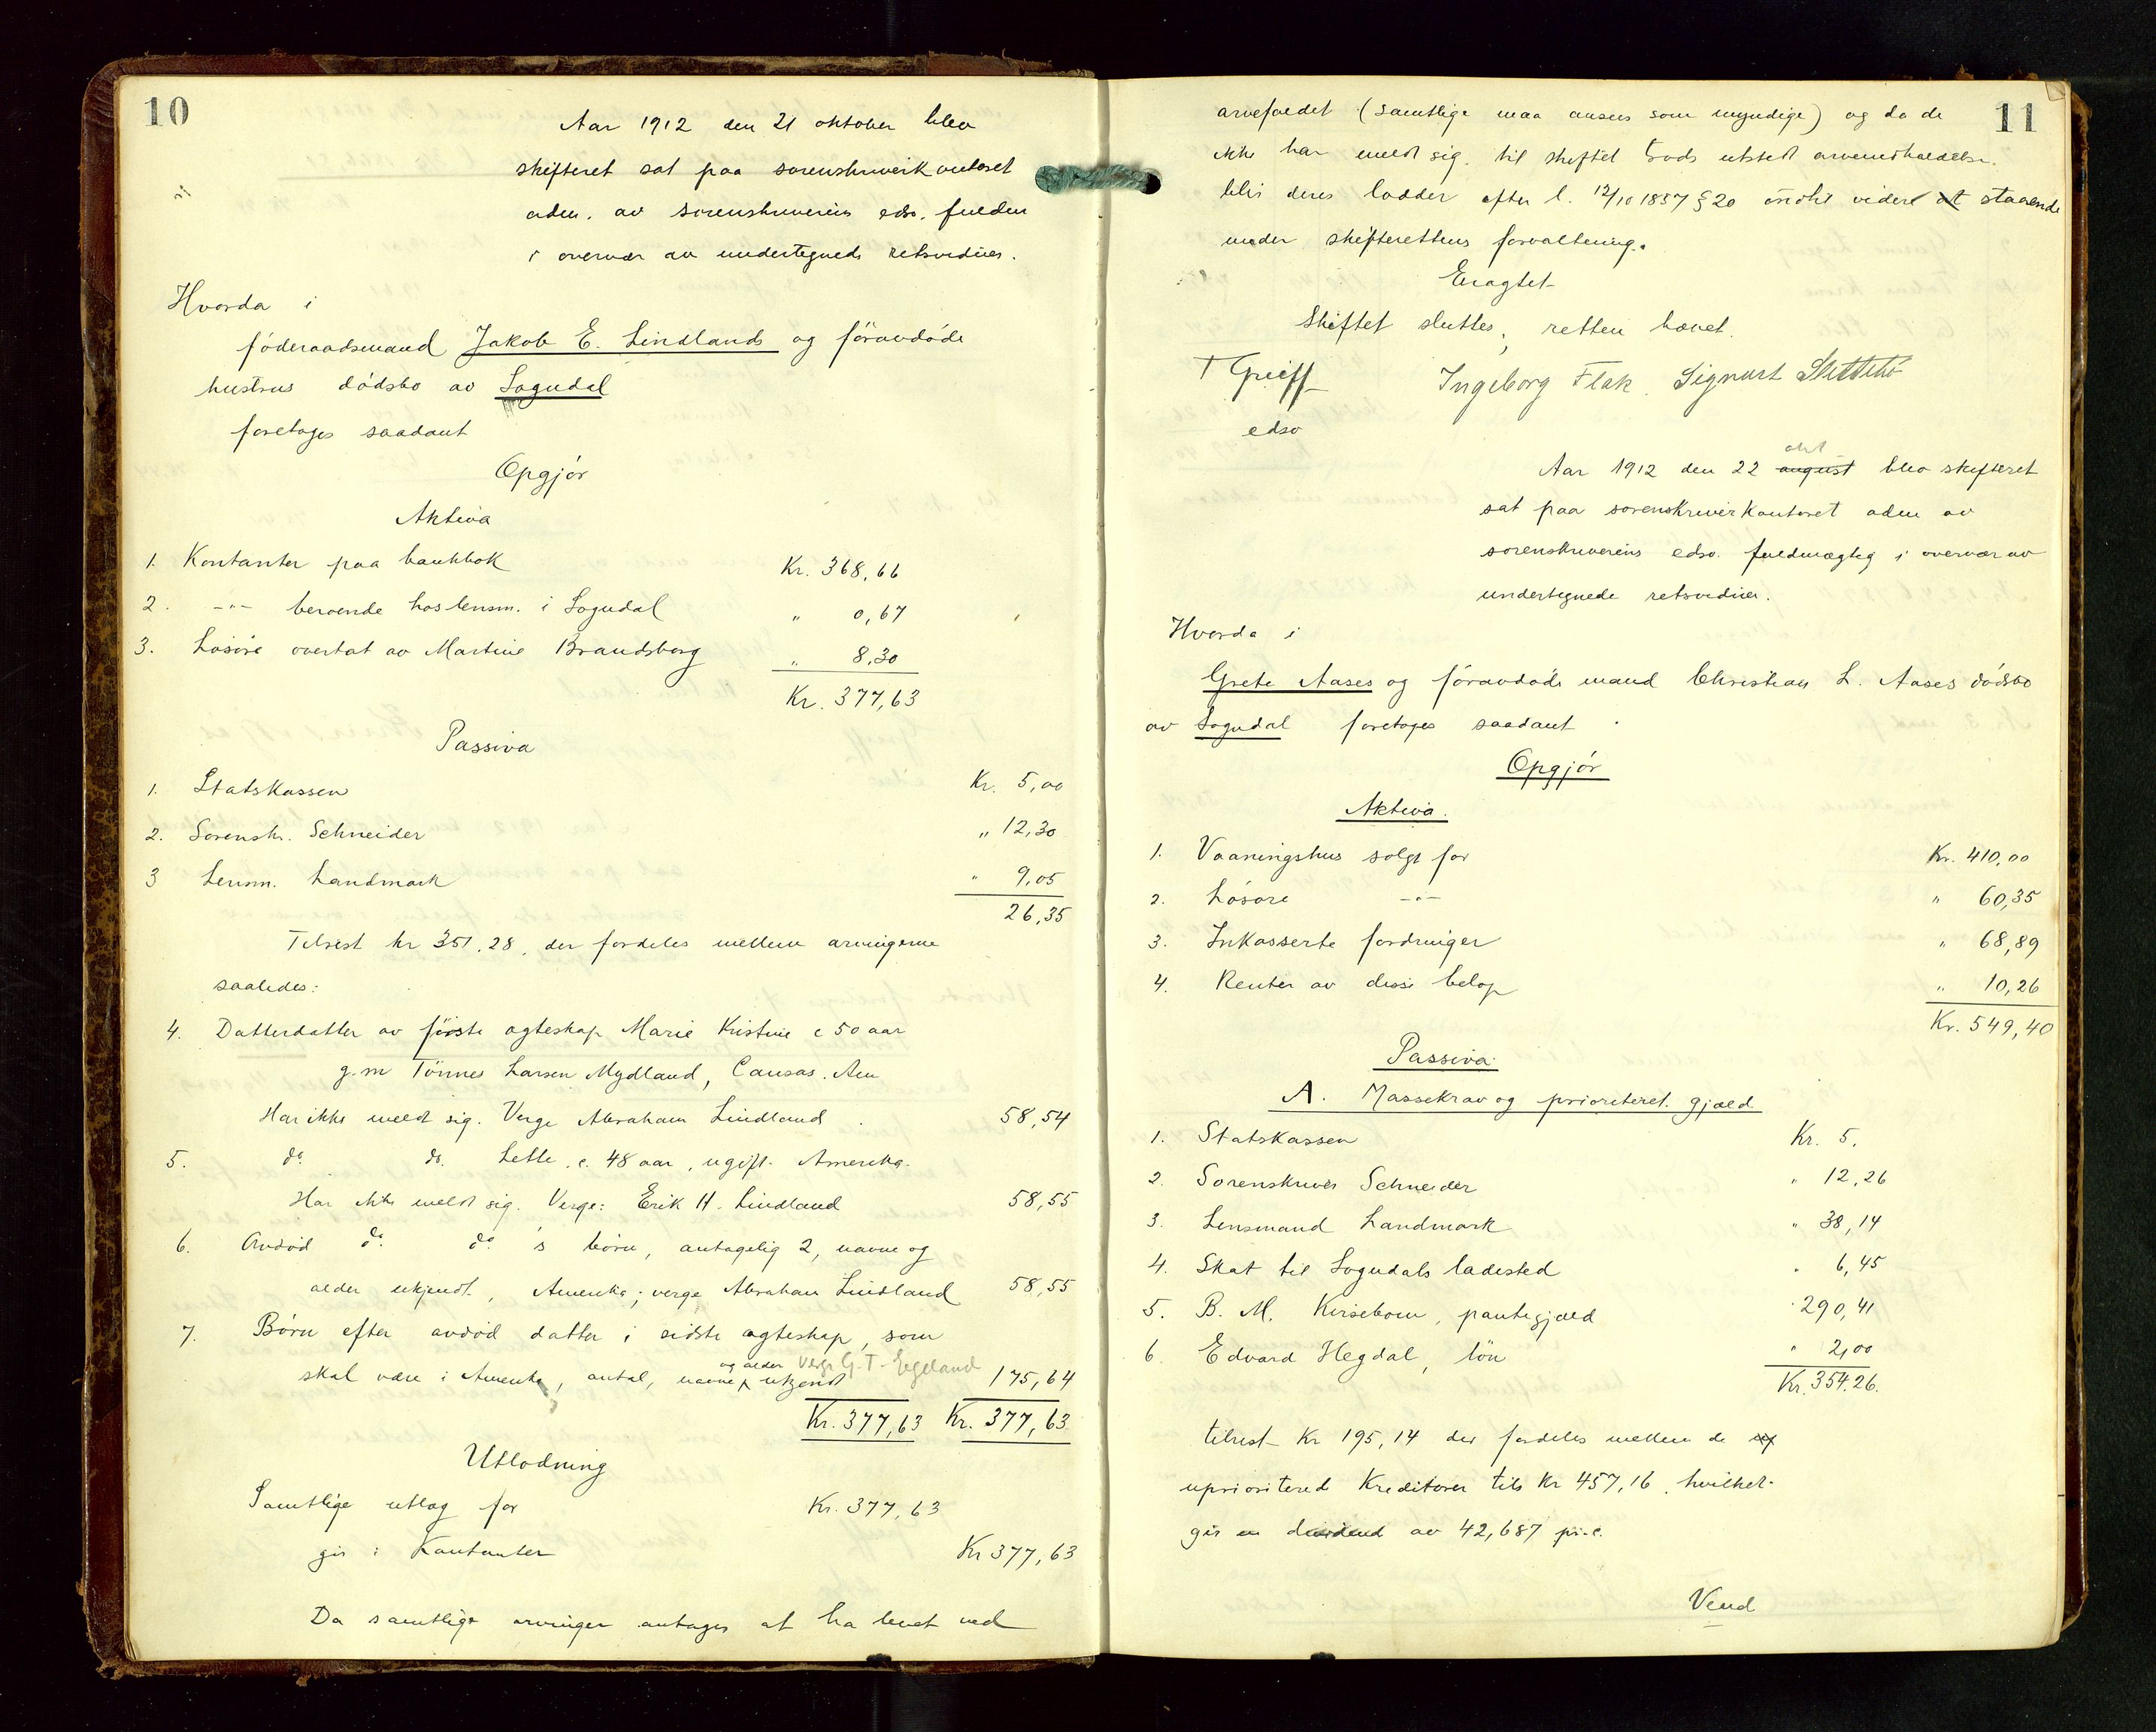 10
Aar 1912 den 21 oktober blev
skifteret sat paa sorenskriverkontoret
adm. av sorenskriverens edsv. fuldm
i overvær av undertegnede retsvidner.
Hvorda i
föderaadsmand Jakob E. Lindlands og föravdöde
hustrus dödsbo av Sogndal
foretoges saadant
Opgjör
Aktiva
1. Kontanter paa bankbok Kr. 368,66
2. -"- beroende hos lensm. i Sogndal " 0,67
3. Lösöre overtat av Martine Brandsberg " 8,30
Kr. 377,63
Passiva
1. Statskassen Kr. 5,00
2. Sorenskr. Schneider " 12,30
3 Lensm. Landmark " 9,05
26,35
Tilrest kr 351,28, der fordeles mellem arvingerne
saaledes:
4. Datterdatter av förste egteskap Marie Kristine c 50 aar
g.m Tönnes Larsen Mydland, Cansas. Am
Har ikke meldt sig. Verge Abraham Lindland 58,54
5. do. do. Lette, c. 48 aar, ugift. Amerika.
Har ikke meldt sig. Verge: Erik H. Lindland 58,55
6. Avdöd do. do. s börn, antagelig 2, navne og
alder ukjendt, Amerika; verge Abraham Lindland 58,55
7. Börn efter avdöd datter i sidste egteskap, som
og alder Verge G. T. Eegeland
skal være i Amerika, antal, navne ukjendt 175,64
Kr. 377,63 Kr. 377,63
Utlodning
Samtlige utlæg for Kr. 377,63
gis i Kontanter Kr 377,63
Da samtlige arvinger antages at ha levet ved
11
arvefaldet (samtlige maa ansees som myndige) og da de
ikke har meldt sig til skiftet trods utstedt arveindkaldelse.
blir deres lodder efter l. 12/10 1857 § 20 indtil videre at staaende
under skifterettens forvaltning.
Eragtet
Skiftet sluttes, retten hævet.
T Greiff
edsv
Ingeborg Flak. Signart
okt
Aar 1912 den 22 august blev skifteret
sat paa sorenskriverkontoret adm av
sorenskriverens edsv. fuldmægtig i overvær av
undertegnede retsvidner.
Hvorda i
Grete Aases og föravdöde mand Christian L. Aases dödsbo
av Sogndal foretoges saadant
Opgjör
Aktiva.
1. Vaaningshus solgt for Kr. 410,00
2. Lösöre -"- " 60,35
3. Inkasserte fordringer " 68,89
4. Renter av disse belöp " 10,26
Kr. 549,40
Passiva
A. Massekrav og prioriteret gjæld
1. Statskassen Kr. 5.
2. Sorenskriver Schneider " 12,26
3. Lensmand Landmark " 38,14
4. Skat til Sogndals ladested " 6,45
5. B. M. Kirsebom, pantegjæld " 290,41
6. Edvard Hegdal, lön " 2,00
Kr. 354.26.
tilrest Kr 195,14 der fordeles mellem de
uprioriterede Kreditorer tils Kr 457,16, hvilket
gir en dividend av 42,687 pr. c.
Vend